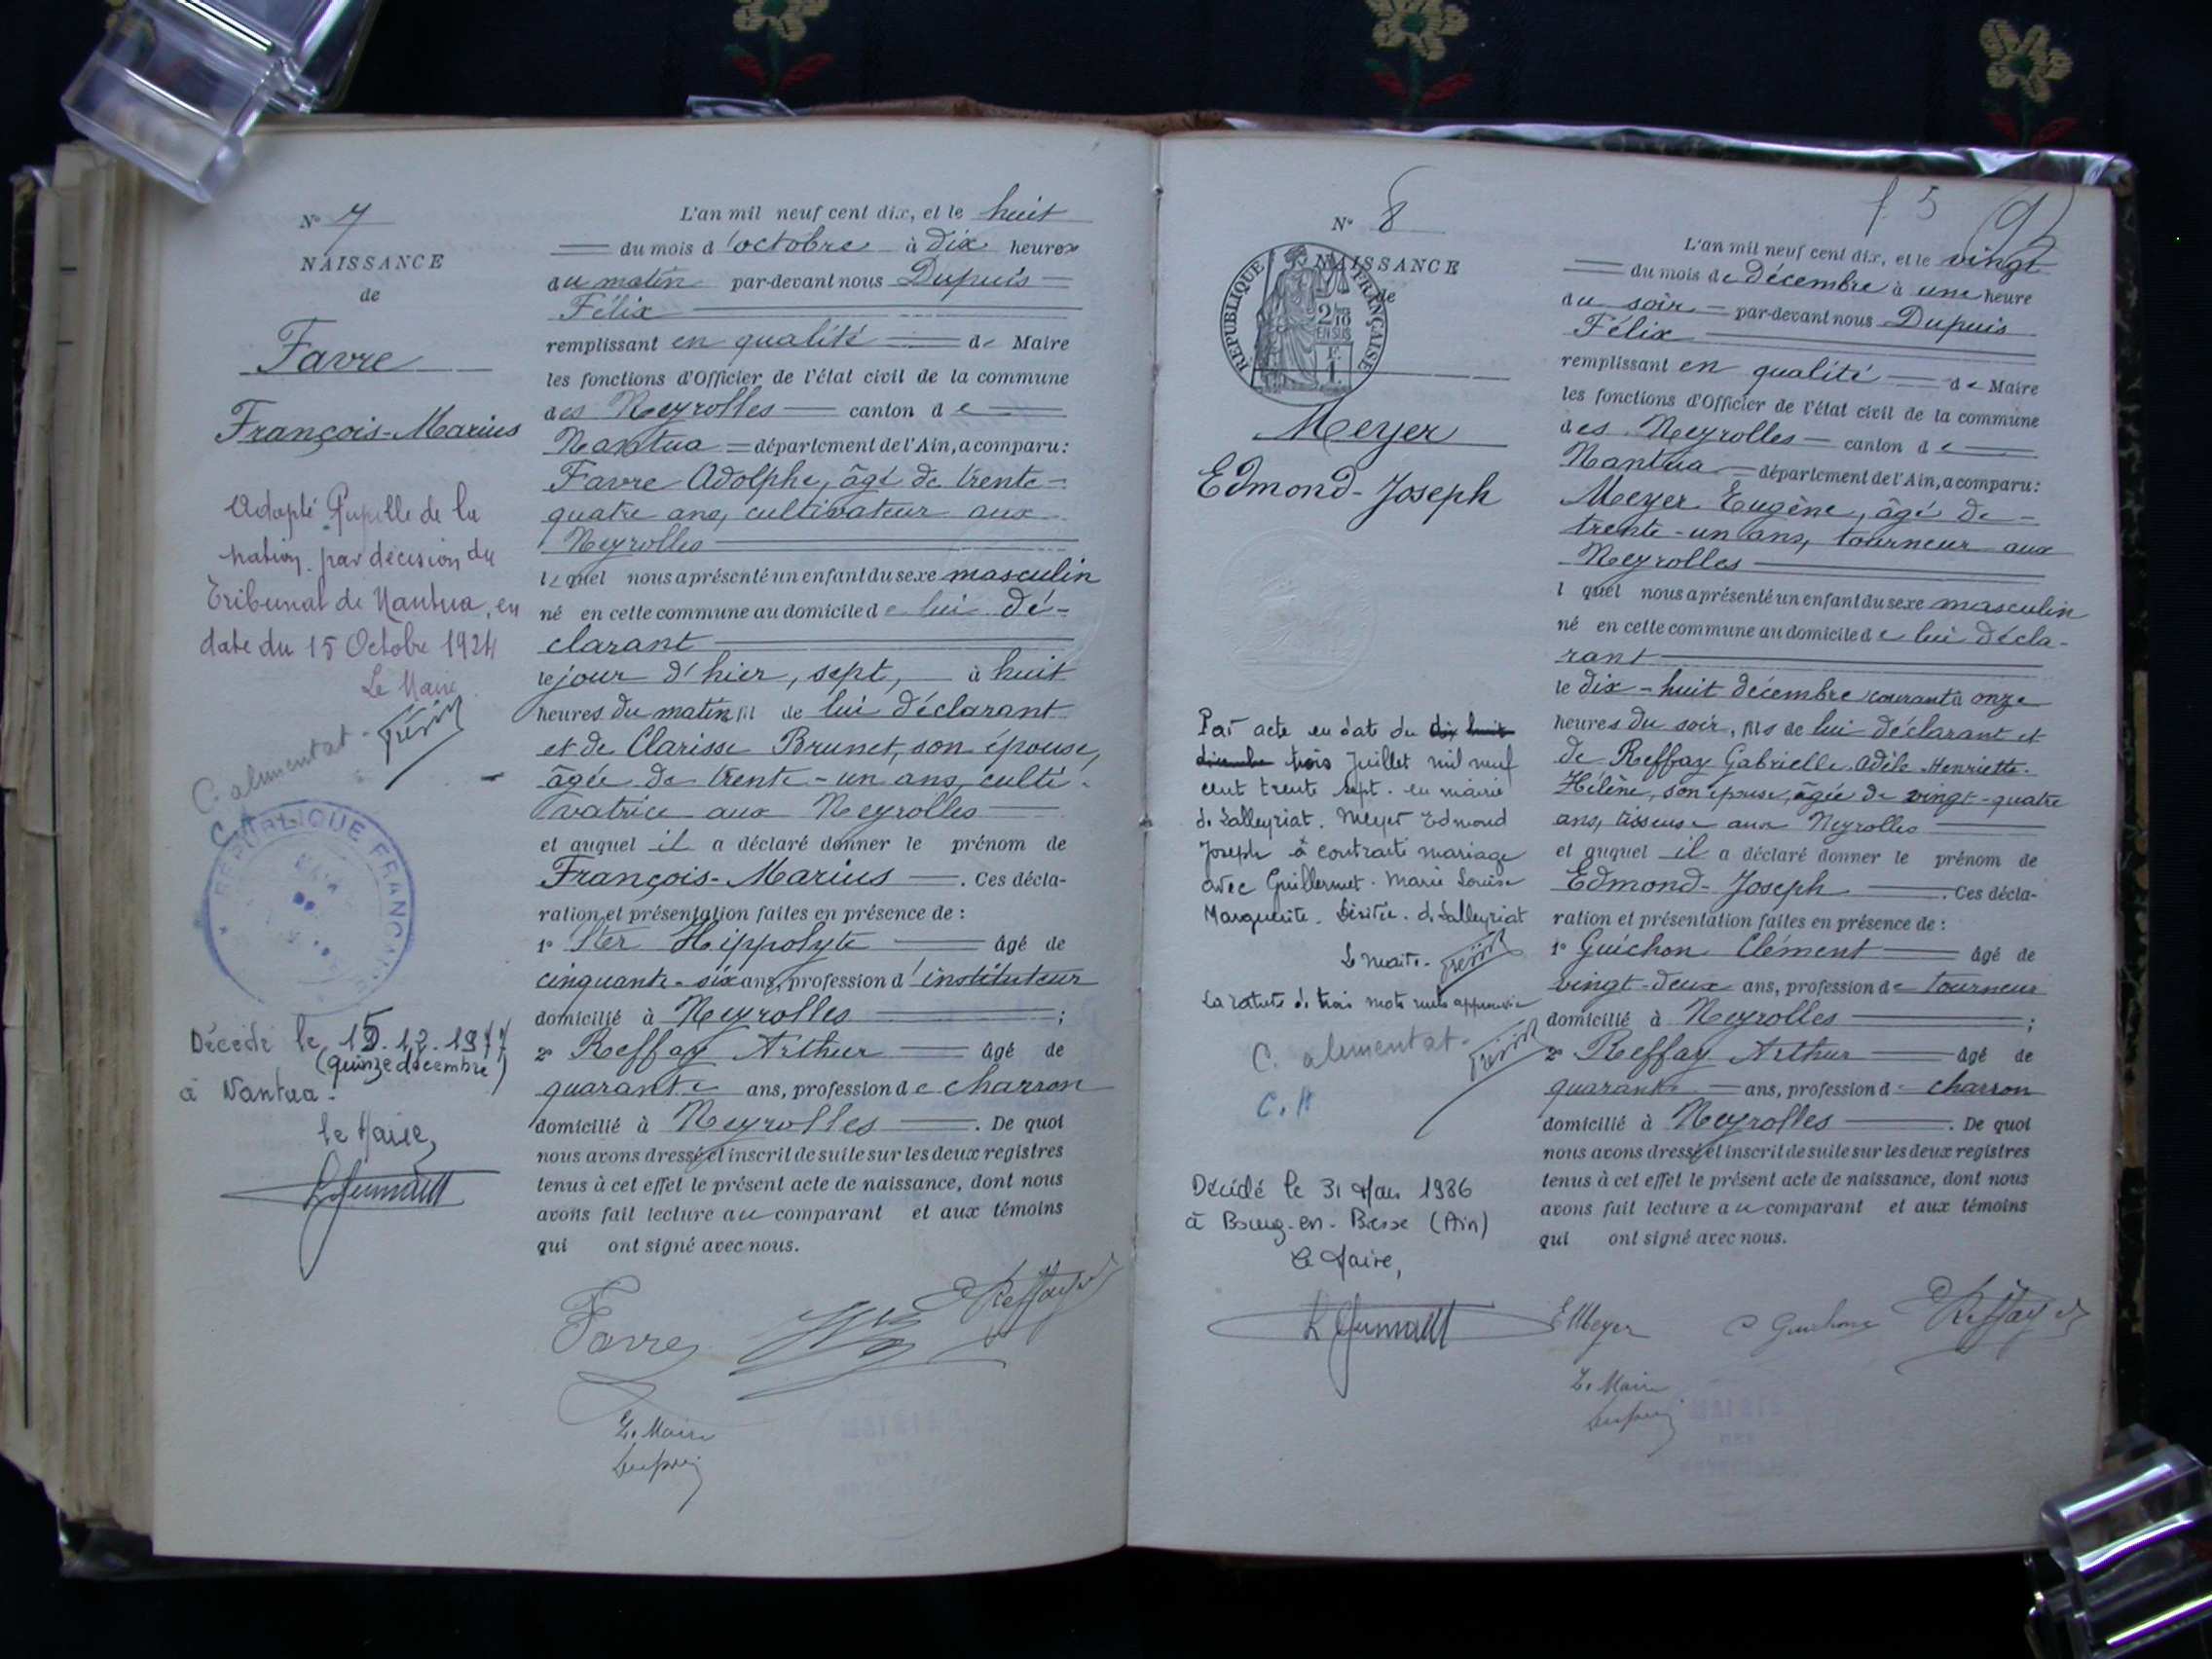 N° 7
NAISSANCE
de
Favre
François-Marius
Adopté Pupille de la
nation par décision du
Tribunal de Nantua, en
date du 15 Octobre 1924
Le Maire
C. alimentat.
C.A
REPUBLIQUE FRANCAISE
Décédé le 15.12.1977
(quinze décembre)
à Nantua.
le Maire,
L'an mil neuf cent dix, et le huit
du mois d'octobre à dix heures
du matin par-devant nous Dupuis
Félix
remplissant en qualité de Maire
les fonctions d'Officier de l'état civil de la commune
des Neyrolles canton de
Nantua département de l'Ain, a comparu:
Favre Adolphe, âgé de trente-
quatre ans, cultivateur aux
Neyrolles
lequel nous a présenté un enfant du sexe masculin
né en cette commune au domicile de lui dé-
clarant
le jour d'hier, sept, à huit
heures du matin fil de lui déclarant
et de Clarisse Brunet, son épouse,
âgée de trente-un ans, culti-
vatrice aux Neyrolles
et auquel il a déclaré donner le prénom de
François-Marius. Ces décla-
ration et présentation faites en présence de :
1° Ster Hippolyte âgé de
cinquante-six ans, profession d'instituteur
domicilié à Neyrolles ;
2° Reffay Arthur âgé de
quarante ans, profession de charron
domicilié à Neyrolles. De quoi
nous avons dressé et inscrit de suite sur les deux registres
tenus à cet effet le présent acte de naissance, dont nous
avons fait lecture au comparant et aux témoins
qui ont signé avec nous.
Favre
Reffay
Le Maire
Dupuis
f. 5
92
N° 8
NAISSANCE
de
REPUBLIQUE FRANÇAISE
2/10
EN SUS
F.
1
Meyer
Edmond-Joseph
Par acte en date du dix huit
décembre trois Juillet mil neuf
cent trente sept. en mairie
de Lalleyriat. Meyer Edmond
Joseph à contracté mariage
avec Guillermet. Marie Louise
Marguerite. Désirée. de Lalleyriat
Le maire.
La rature de trois mots nuls approuvée
C. alimentat.
C.A
Décédé le 31 Mars 1986
à Bourg-en-Bresse (Ain)
Le Maire,
L'an mil neuf cent dix, et le vingt
du mois de décembre à une heure
du soir par-devant nous Dupuis
Félix
remplissant en qualité de Maire
les fonctions d'Officier de l'état civil de la commune
des Neyrolles canton de
Nantua département de l'Ain, a comparu:
Meyer Eugène, âgé de
trente-un ans, tourneur aux
Neyrolles
l quel nous a présenté un enfant du sexe masculin
né en cette commune au domicile de lui décla-
rant
le dix-huit décembre courant à onze
heures du soir, fils de lui déclarant et
de Reffay Gabrielle Adèle Henriette
Hélène, son épouse, âgée de vingt-quatre
ans, tisseuse aux Neyrolles
et auquel il a déclaré donner le prénom de
Edmond-Joseph. Ces décla-
ration et présentation faites en présence de :
1° Guichon Clément âgé de
vingt-deux ans, profession de tourneur
domicilié à Neyrolles ;
2° Reffay Arthur âgé de
quarante ans, profession de charron
domicilié à Neyrolles. De quoi
nous avons dressé et inscrit de suite sur les deux registres
tenus à cet effet le présent acte de naissance, dont nous
avons fait lecture au comparant et aux témoins
qui ont signé avec nous.
E Meyer C Guichon Reffay
Le Maire
Dupuis